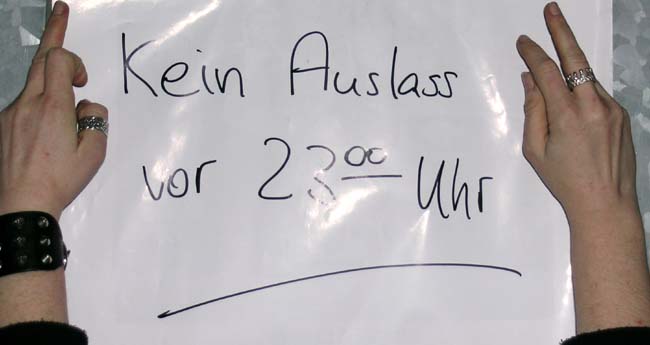 Kein Auslass
vor 23⁰⁰ Uhr